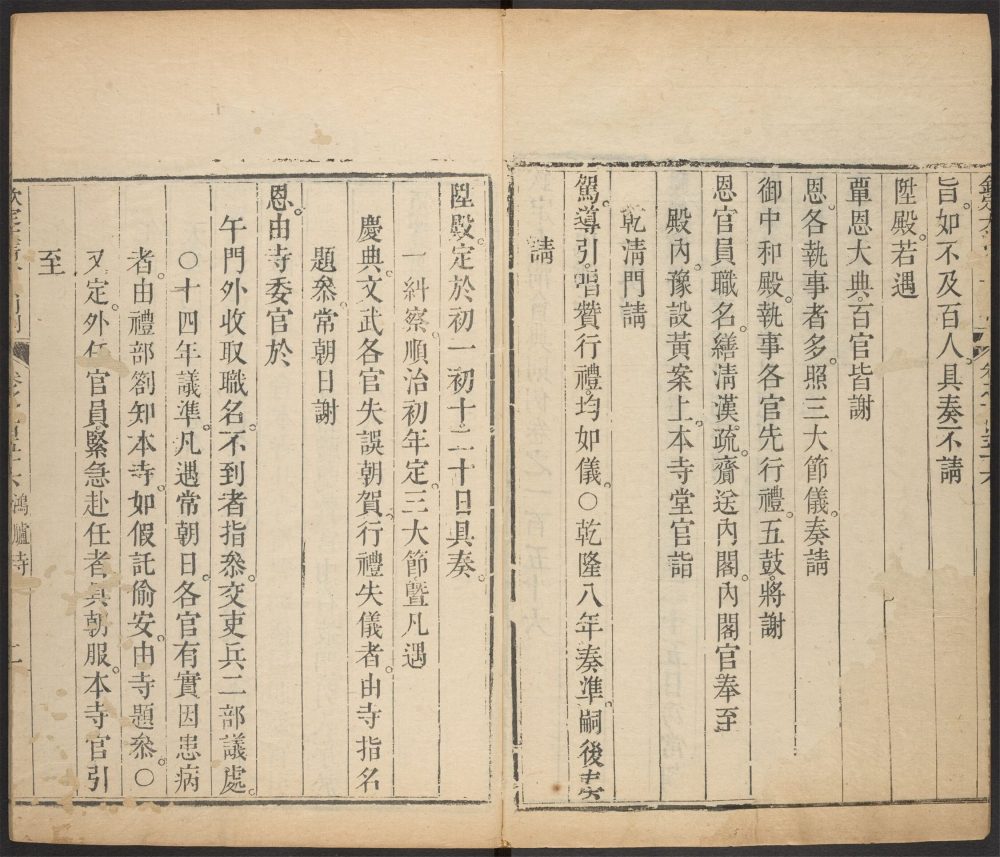 旨。如不及百人。具奏不請
陞殿。若遇
覃恩大典。百官皆謝
恩。各執事者多。照三大節儀。奏請
御中和殿。執事各官先行禮。五鼓。將謝
恩官員職名。繕清漢疏。齎送內閣。內閣官奉至
殿內。豫設黃案上。本寺堂官詣
乾清門請
駕導引。唱贊行禮均如儀。○乾隆八年奏准。嗣後奏
請
陞殿。定於初一初十二十日具奏。
一糾察。順治初年定。三大節暨凡遇
慶典。文武各官失誤朝賀。行禮失儀者。由寺指名
題參。常朝日謝
恩。由寺委官於
午門外收取職名。不到者指參。交吏兵二部議處。
○十四年議準。凡遇常朝日。各官有實因患病
者。由禮部劄知本寺。如假託偷安。由寺題參。○
又定。外任官員緊急赴任者。具朝服。本寺官引
至
鴻臚寺 二